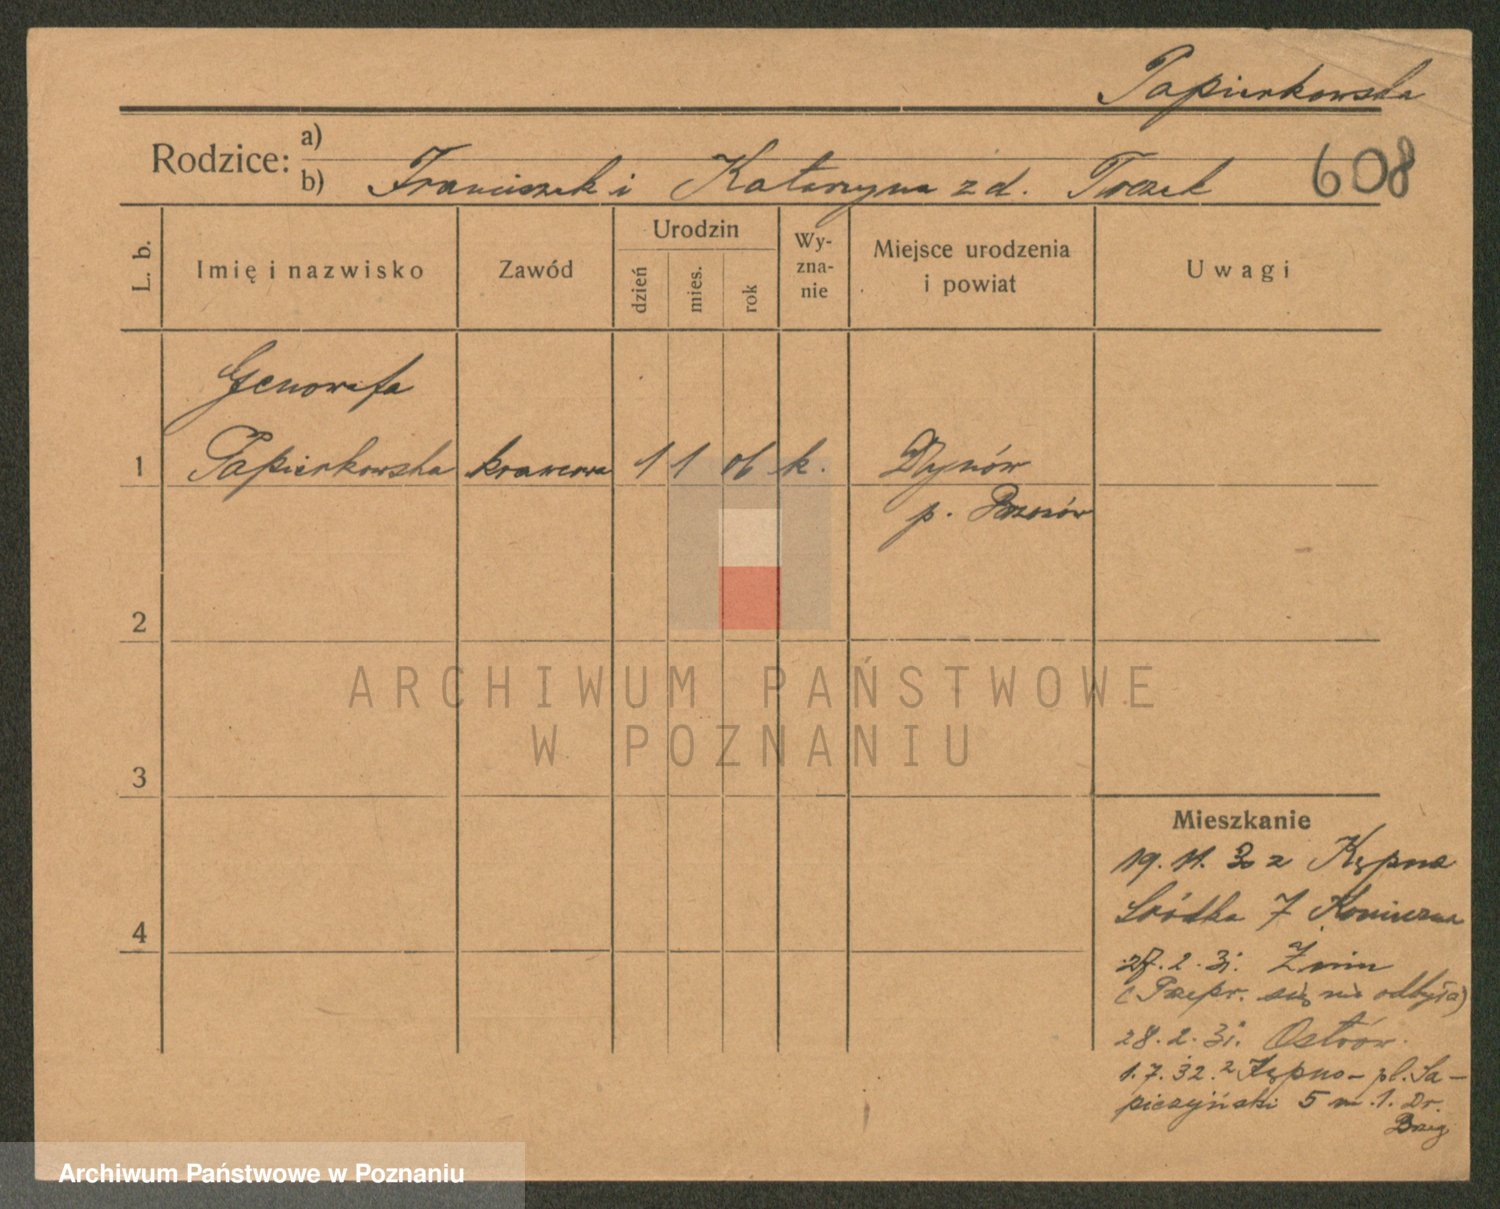 Papierkowska
Rodzice: a)
b) Franciszek i Katarzyna z d. 608
L. b. Imię i nazwisko Zawód Urodzin dzień mies. rok Wyznanie Miejsce urodzenia i powiat Uwagi
Genowefa
1 Papierkowska krawcowa 1 1 06 k. Dynów
p. Brzozów
2
3
4
Mieszkanie
19. 11. 30 z Kępna
Śródka 7 Konieczna
27. 2. 31. Żnin
(Przepr. się nie odbyła)
28. 2. 31. Ostrów.
1. 7. 32. z Kępno - pl. Sa-
pieżyński 5 m. 1. Dr.
ARCHIWUM PAŃSTWOWE
W POZNANIU
Archiwum Państwowe w Poznaniu